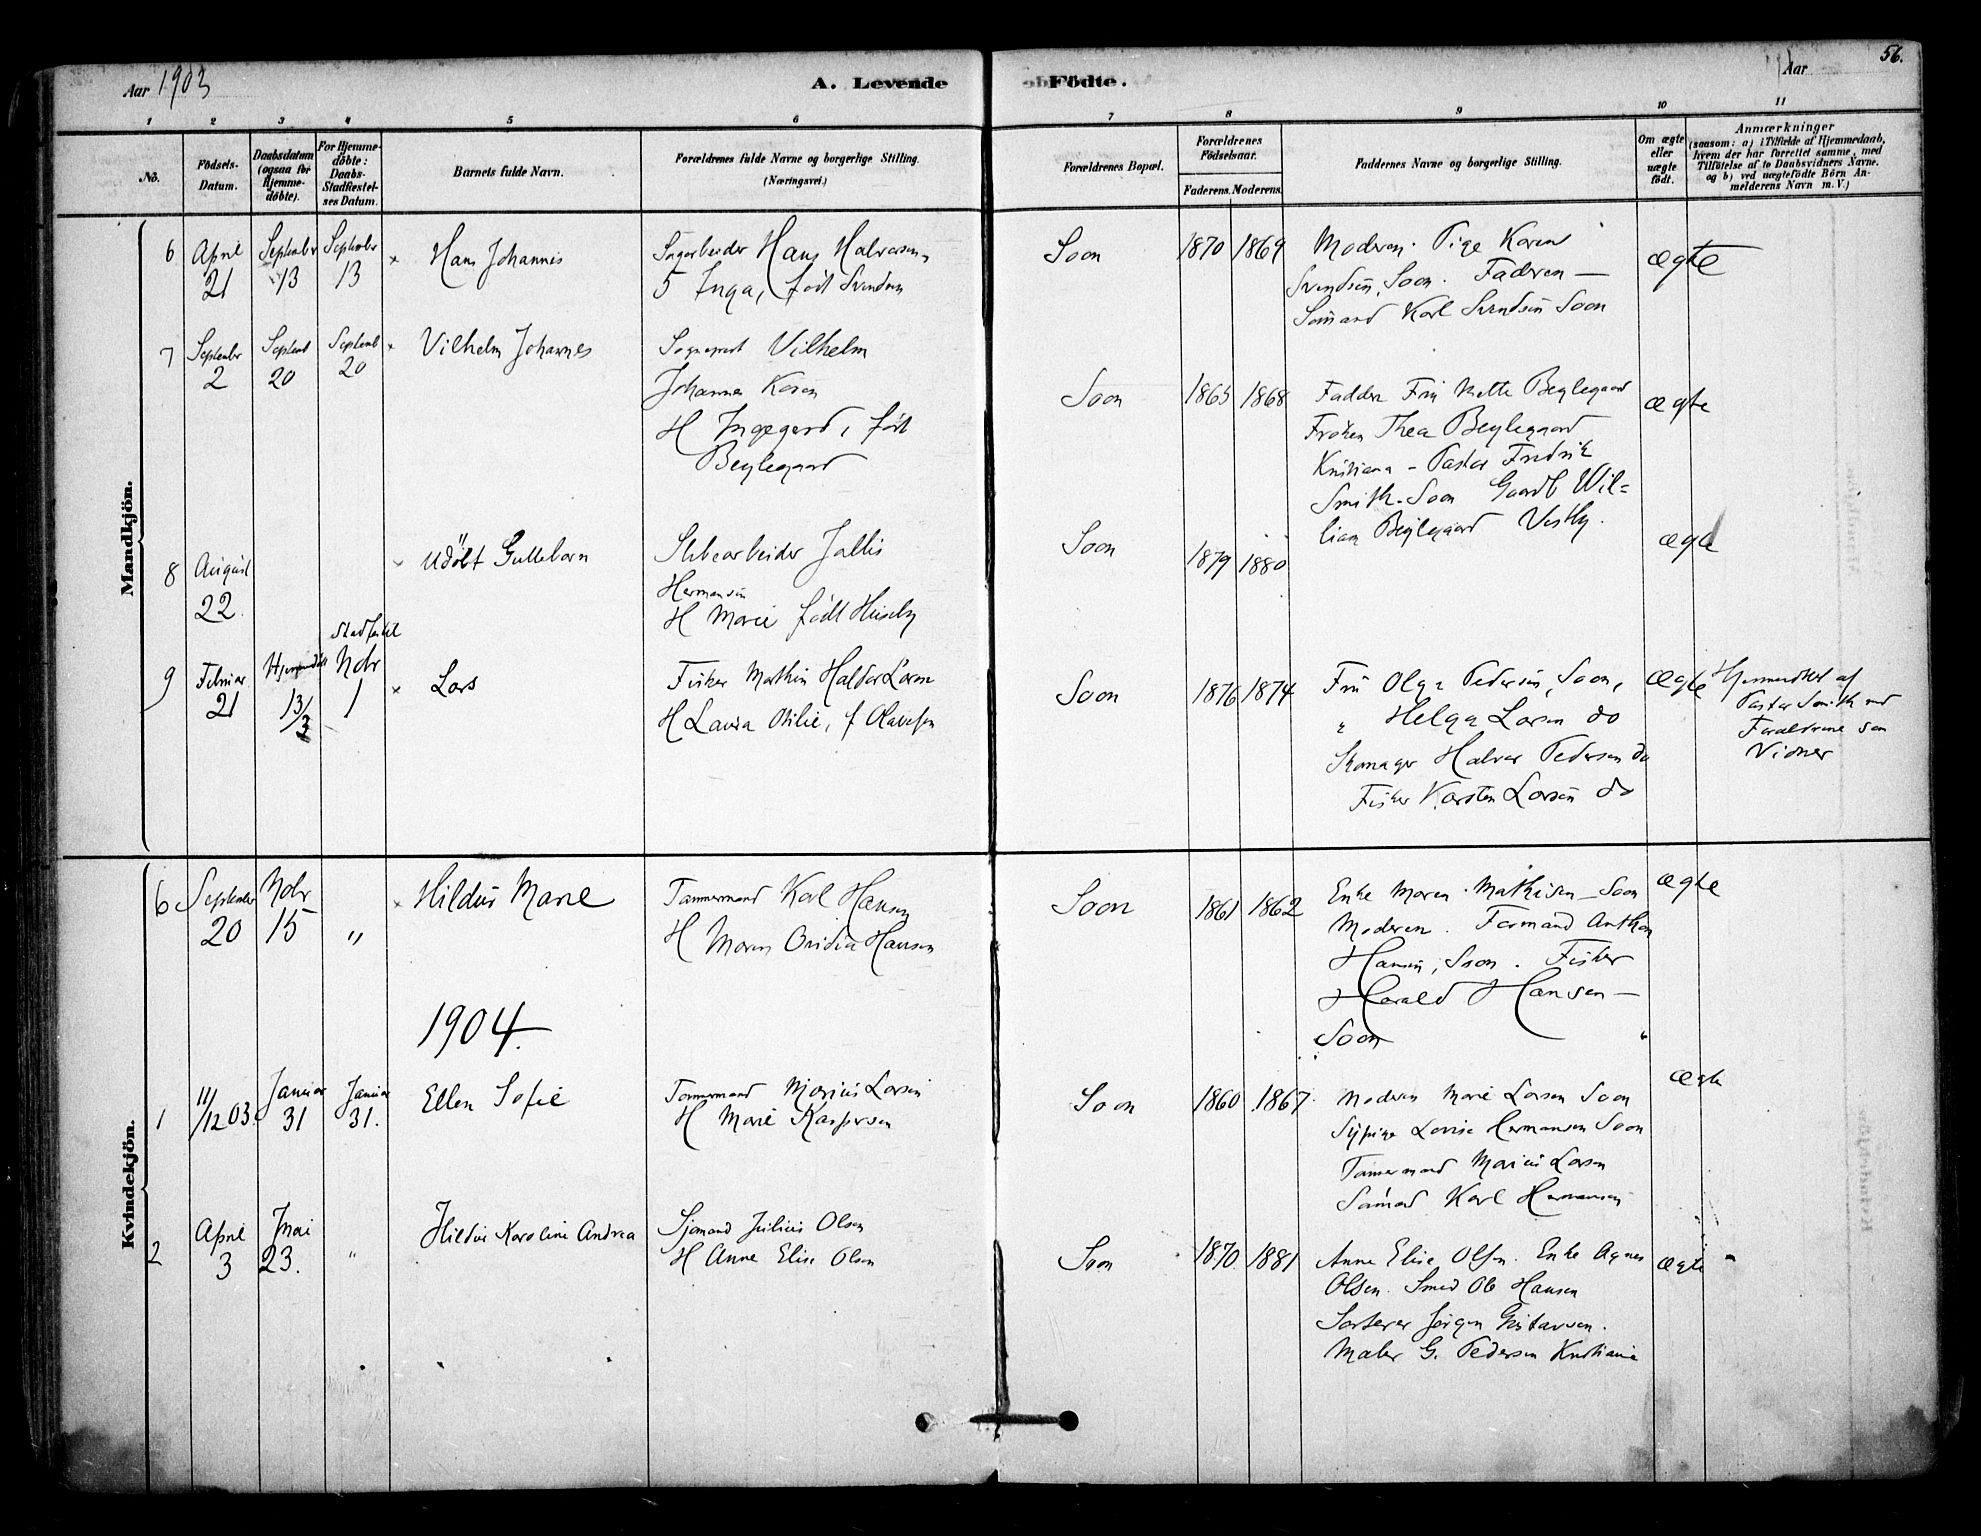 Aar 1903
A. Levende
Födte.
Aar
56.
1 2 3 4 5 6 7 8 9 10 11
No.
Födsels-
Datum.
Daabsdatum
(ogsaa for
Hjemme-
döbte).
For Hjemme-
döbte:
Daabs-
Stadfæstel-
ses Datum.
Barnets fulde Navn.
Forældrenes fulde Navne og borgerlige Stilling.
(Næringsvei.)
Forældrenes Bopæl.
Forældrenes
Födselsaar.
Faderens. Moderens.
Faddernes Navne og borgerlige Stilling.
Om ægte
eller
uægte
födt.
Anmærkninger
(saasom: a) i Tilfælde af Hjemmedaab,
hvem der har forrettet samme, med
Tilföielse af to Daabsvidners Navne.
og b) ved uægtefödte Börn An-
melderens Navn m. V.)
Mandkjön.
6
April
21
September
13
September
13
Hans Johannes
Hans Halvorsen
Inga, født Svendsen
Soon
1870 1869
Moderen. Pige Karen
Svendsen, Soon. Faderen —
Sömand Karl Svendsen Soon
ægte
7
September
2
Septemb
20
Septemb
20
Vilhelm Johannes
Sogneprest Vilhelm
Johannes Koren
H Ingegerd, født
Beylegaard
Soon
1865 1868
Faddere Fru Mette Beylegaard
Frøken Thea Beylegaard
Kristiania – Pastor Fredrik
Smith. Soon Gaardb Wil=
liam Beylegaard Vestby.
ægte
8
August
22
Udöbt Guttebarn
Hermansen
H Marie født Huseby
Soon
1879 1880
ægte
9
Februar
21
Hjemmedöbt
13/3
Stadfæstet
Nobr
1
Lars
Fisker Mathin Haldor Larsen
H Laura Otilie, f Olavesen
Soon
1876 1874
Fru Olga Pedersen, Soon,
" Helga Larsen do
Skomager Halvor Pedersen do
Fisker Karsten Larsen do
ægte
Hjemmedöbt af
Pastor Smith med
Forældrene som
Vidner
Kvindekjön.
6
September
20
Nobr
15
"
Hildur Marie
Tømmermand Karl Hansen
H Maren Hansen
Soon
1861 1862
Enke Maren Mathisen – Soon
Moderen. Formand Anthon
Hansen, Soon. Fisker
Harald Hansen –
Soon
ægte
1904.
1
11/12 03.
Januar
31
Januar
31.
Ellen Sofie
Tømmermand Marius Larsen
H Marie Kaspersen
Soon
1860 1867
Moderen Marie Larsen Soon
Sypige Lovise Hermansen Soon
Tømmermand Marius Larsen
Sömand Karl Hermansen
ægte
2
April
3
Mai
23.
"
Hildur Karoline Andrea
Sjømand Julius Olsen
H Anne Elise Olsen
Soon
1870 1881
Anne Elise Olsen. Enke Agnes
Olsen. Smed Ole Hansen
Sorterer Jørgen Gustavsen.
Maler G. Pedersen Kristiania
ægte